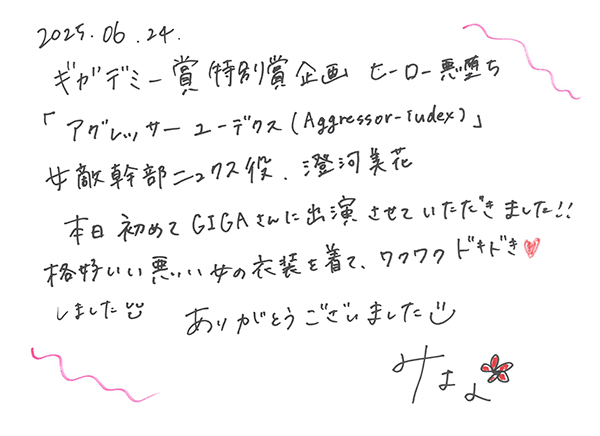 2025.06.24.
ギガデミー賞 特別賞企画 ヒーロー悪堕ち
「アグレッサーユーデクス(Aggressor-Iudex)」
女敵幹部ニュクス役、澄河美花
本日初めてGIGAさんに出演させていただきました!!
格好いい悪い女の衣装を着て、ワクワクドキドキ♥
しました ありがとうございました